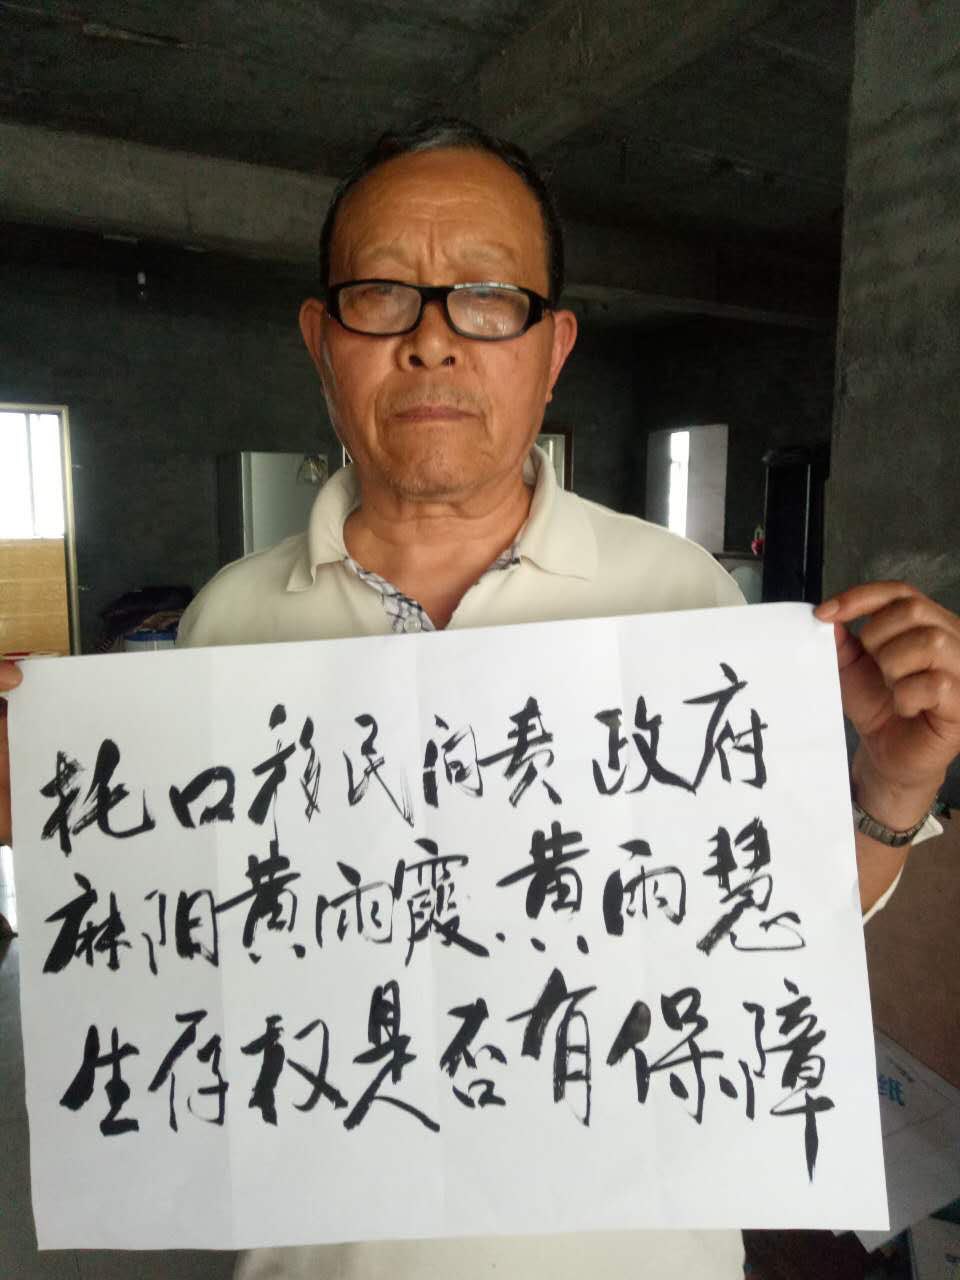 托口移民问责政府
麻阳黄雨霞.黄雨慧
生存权是否有保障
纸